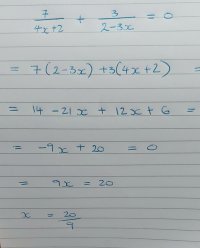 7/(4x+2) + 3/(2-3x) = 0
= 7(2-3x) +3(4x+2) =
= 14 -21x + 12x + 6 =
= -9x + 20 = 0
= 9x = 20
x = 20/9